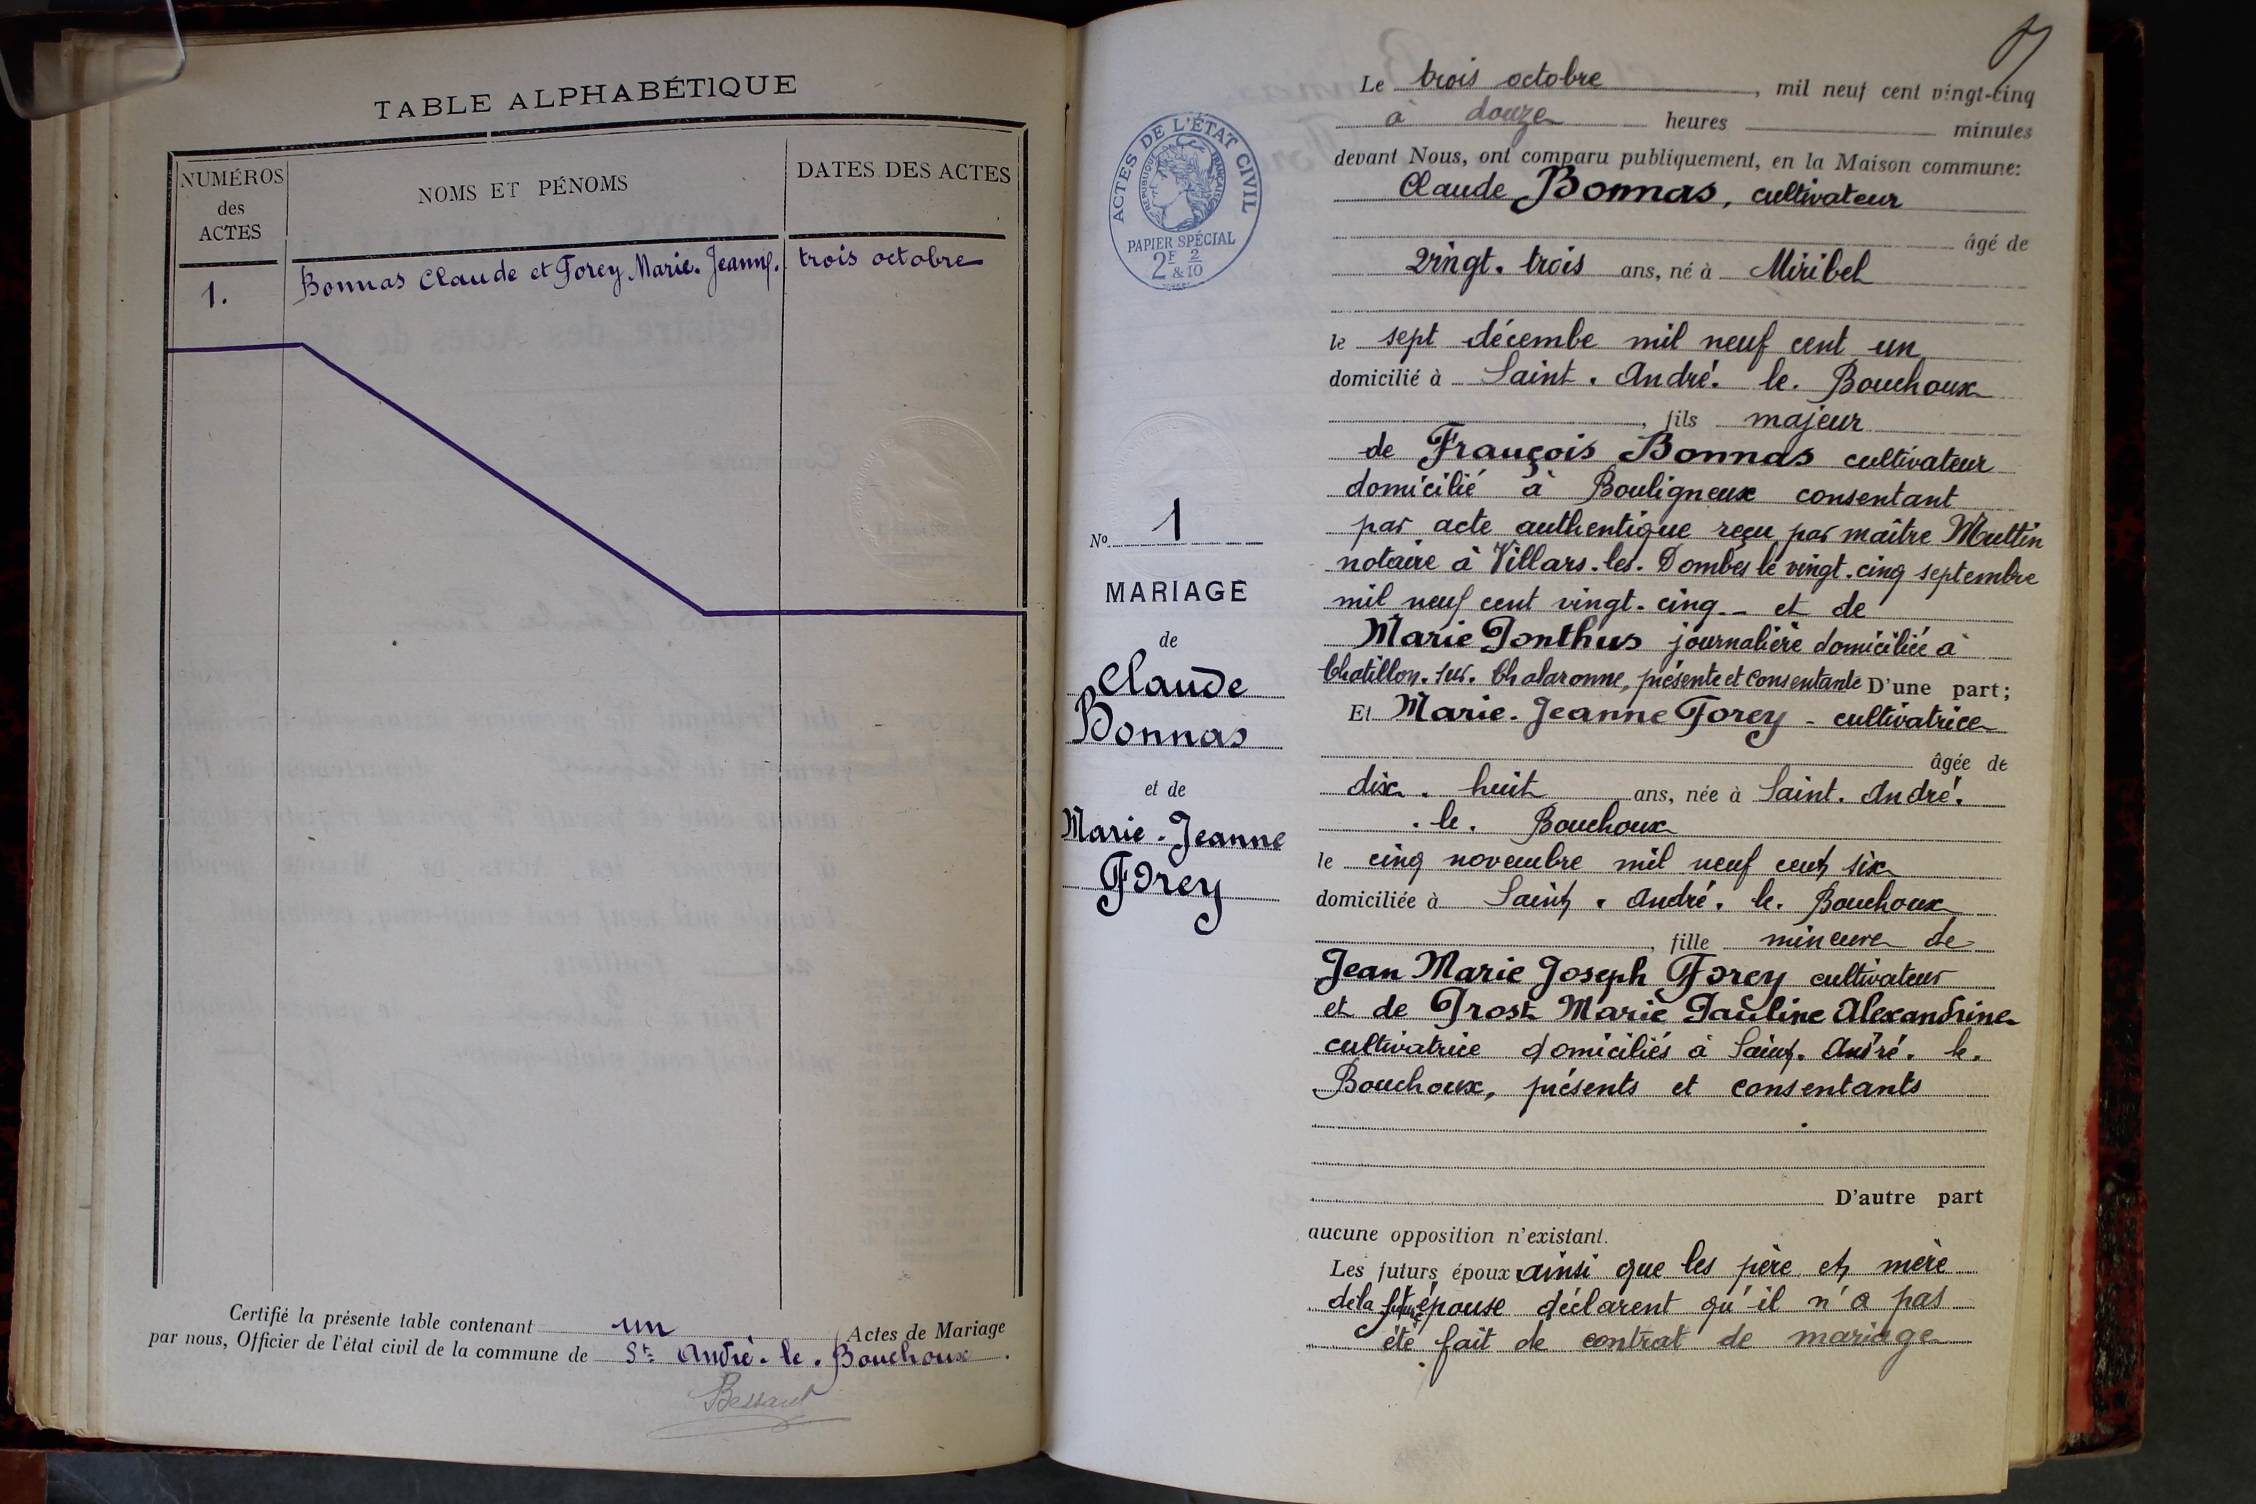 TABLE ALPHABÉTIQUE
NUMÉROS
des
ACTES
NOMS ET PÉNOMS
DATES DES ACTES
1.
Bonnas Claude et Forey Marie. Jeanne.
trois octobre
Certifié la présente table contenant un Actes de Mariage
par nous, Officier de l'état civil de la commune de St André. le. Bouchoux.
Bessard
ACTES DE L'ÉTAT CIVIL
RÉPUBLIQUE FRANÇAISE
PAPIER SPÉCIAL
2F 2
& 10
No 1
MARIAGE
de
Claude
Bonnas
et de
Marie. Jeanne
Forey
Le trois octobre, mil neuf cent vingt-cinq
à douze heures minutes
devant Nous, ont comparu publiquement, en la Maison commune:
Claude Bonnas, cultivateur
âgé de
vingt. trois ans, né à Miribel
le sept décembe mil neuf cent un
domicilié à Saint. André. le. Bouchoux
, fils majeur
de François Bonnas cultivateur
domicilié à Bouligneux consentant
par acte authentique reçu par maître Muttin
notaire à Villars. les. Dombes le vingt. cinq septembre
mil neuf cent vingt. cinq et de
Marie Ponthus journalière domiciliée à
Chatillon. sur. Chalaronne, présente et consentante D'une part;
Et Marie. Jeanne Forey - cultivatrice
âgée de
dix. huit ans, née à Saint. André.
. le. Bouchoux
le cinq novembre mil neuf cent six
domiciliée à Saint. André. le. Bouchoux
, fille mineure de
Jean Marie Joseph Forey cultivateur
et de Prost Marie Pauline Alexandrine
cultivatrice domiciliés à Saint. André. le.
Bouchoux, présents et consentants
D'autre part
aucune opposition n'existant.
Les futurs époux ainsi que les père et mère
de la future épouse déclarent qu'il n'a pas
été fait de contrat de mariage